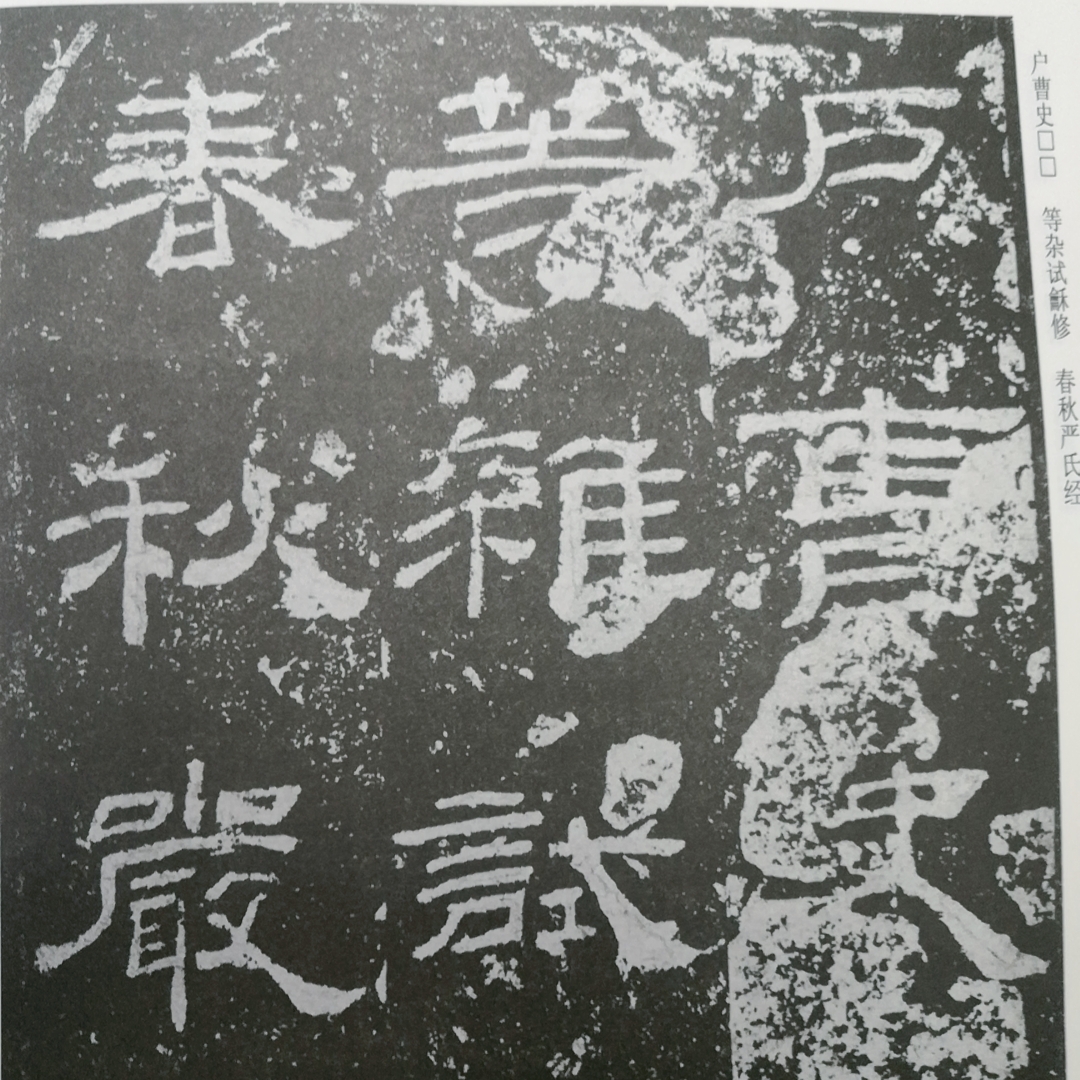 户曹史□□　等杂试稣修　春秋严氏经
户曹史
等雜試
春秋嚴